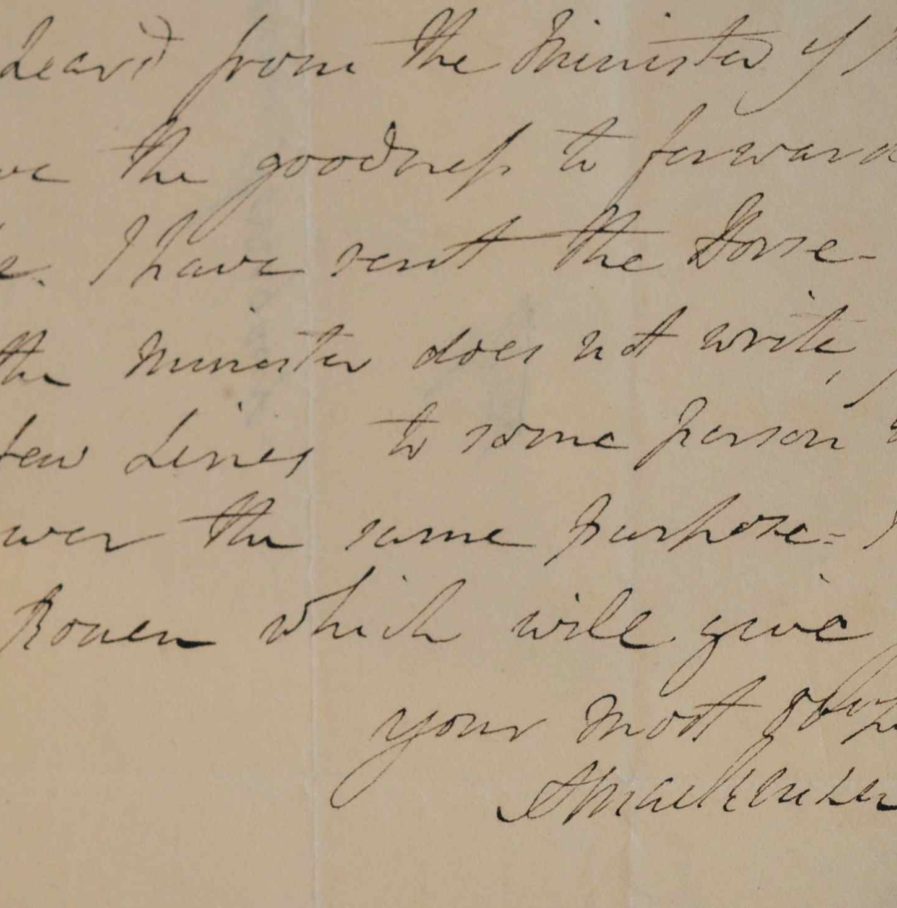 heard from the Minister of
the goodness to forward
I have sent the Horse-
the Minister does not write,
few Lines to some person
the same purpose=
Rouen which will give
your most
AMackenzie